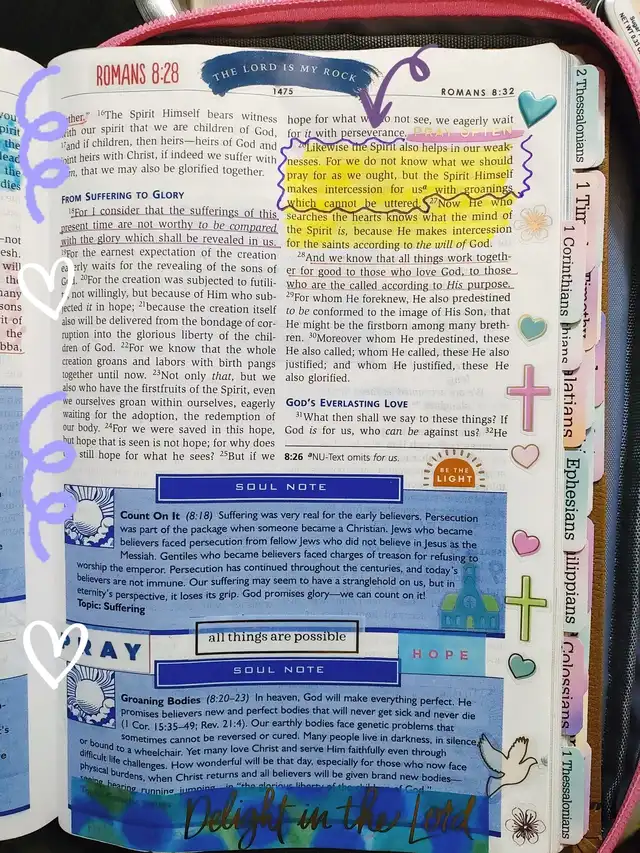 ROMANS 8:28
THE LORD IS MY ROCK
1475
ROMANS 8:32
ther." 16The Spirit Himself bears witness
with our spirit that we are children of God,
17and if children, then heirs—heirs of God and
joint heirs with Christ, if indeed we suffer with
Him, that we may also be glorified together.
FROM SUFFERING TO GLORY
18For I consider that the sufferings of this
present time are not worthy to be compared
with the glory which shall be revealed in us.
19For the earnest expectation of the creation
eagerly waits for the revealing of the sons of
God. 20For the creation was subjected to futili-
not willingly, but because of Him who sub-
jected it in hope; 21because the creation itself
also will be delivered from the bondage of cor-
ruption into the glorious liberty of the chil-
dren of God. 22For we know that the whole
creation groans and labors with birth pangs
together until now. 23Not only that, but we
also who have the firstfruits of the Spirit, even
we ourselves groan within ourselves, eagerly
waiting for the adoption, the redemption of
our body. 24For we were saved in this hope,
but hope that is seen is not hope; for why does
still hope for what he sees? 25But if we
hope for what we do not see, we eagerly wait
for it with perseverance.
PRAY OFTEN
26Likewise the Spirit also helps in our weak-
nesses. For we do not know what we should
pray for as we ought, but the Spirit Himself
makes intercession for usa with groanings
which cannot be uttered. 27Now He who
searches the hearts knows what the mind of
the Spirit is, because He makes intercession
for the saints according to the will of God.
28And we know that all things work togeth-
er for good to those who love God, to those
who are the called according to His purpose.
29For whom He foreknew, He also predestined
to be conformed to the image of His Son, that
He might be the firstborn among many breth-
ren. 30Moreover whom He predestined, these
He also called; whom He called, these He also
justified; and whom He justified, these He
also glorified.
GOD'S EVERLASTING LOVE
31What then shall we say to these things? If
God is for us, who can be against us? 32He
8:26 aNU-Text omits for us.
BE THE
LIGHT
SOUL NOTE
Count On It (8:18) Suffering was very real for the early believers. Persecution
was part of the package when someone became a Christian. Jews who became
believers faced persecution from fellow Jews who did not believe in Jesus as the
Messiah. Gentiles who became believers faced charges of treason for refusing to
worship the emperor. Persecution has continued throughout the centuries, and today's
believers are not immune. Our suffering may seem to have a stranglehold on us, but in
eternity's perspective, it loses its grip. God promises glory—we can count on it!
Topic: Suffering
PRAY
all things are possible
HOPE
SOUL NOTE
Groaning Bodies (8:20–23) In heaven, God will make everything perfect. He
promises believers new and perfect bodies that will never get sick and never die
(1 Cor. 15:35–49; Rev. 21:4). Our earthly bodies face genetic problems that
sometimes cannot be reversed or cured. Many people live in darkness, in silence,
or bound to a wheelchair. Yet many love Christ and serve Him faithfully even through
difficult life challenges. How wonderful will be that day, especially for those who now face
physical burdens, when Christ returns and all believers will be given brand new bodies—
seeing, hearing, running, jumping
Delight in the Lord
2 Thessalonians
1 Tim
1 Corinthians
Ephesians
Colossians
1 Thessalonians